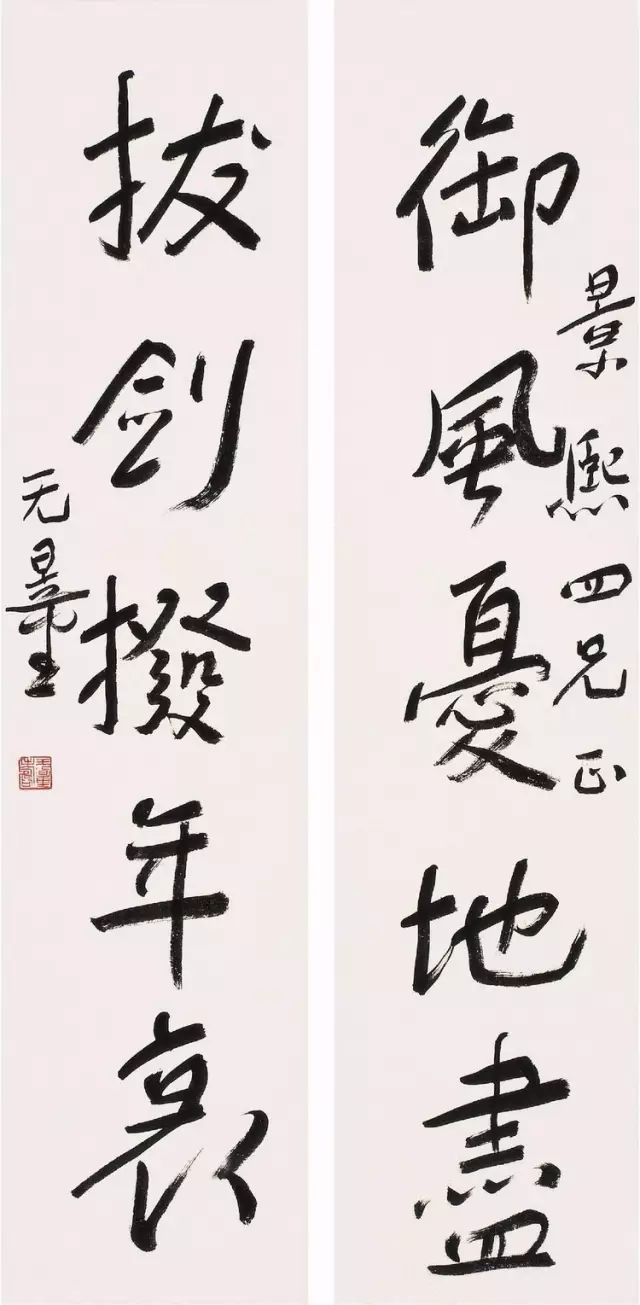 御風憂地盡
景熙四兄正
拔劍撥年衰
无量